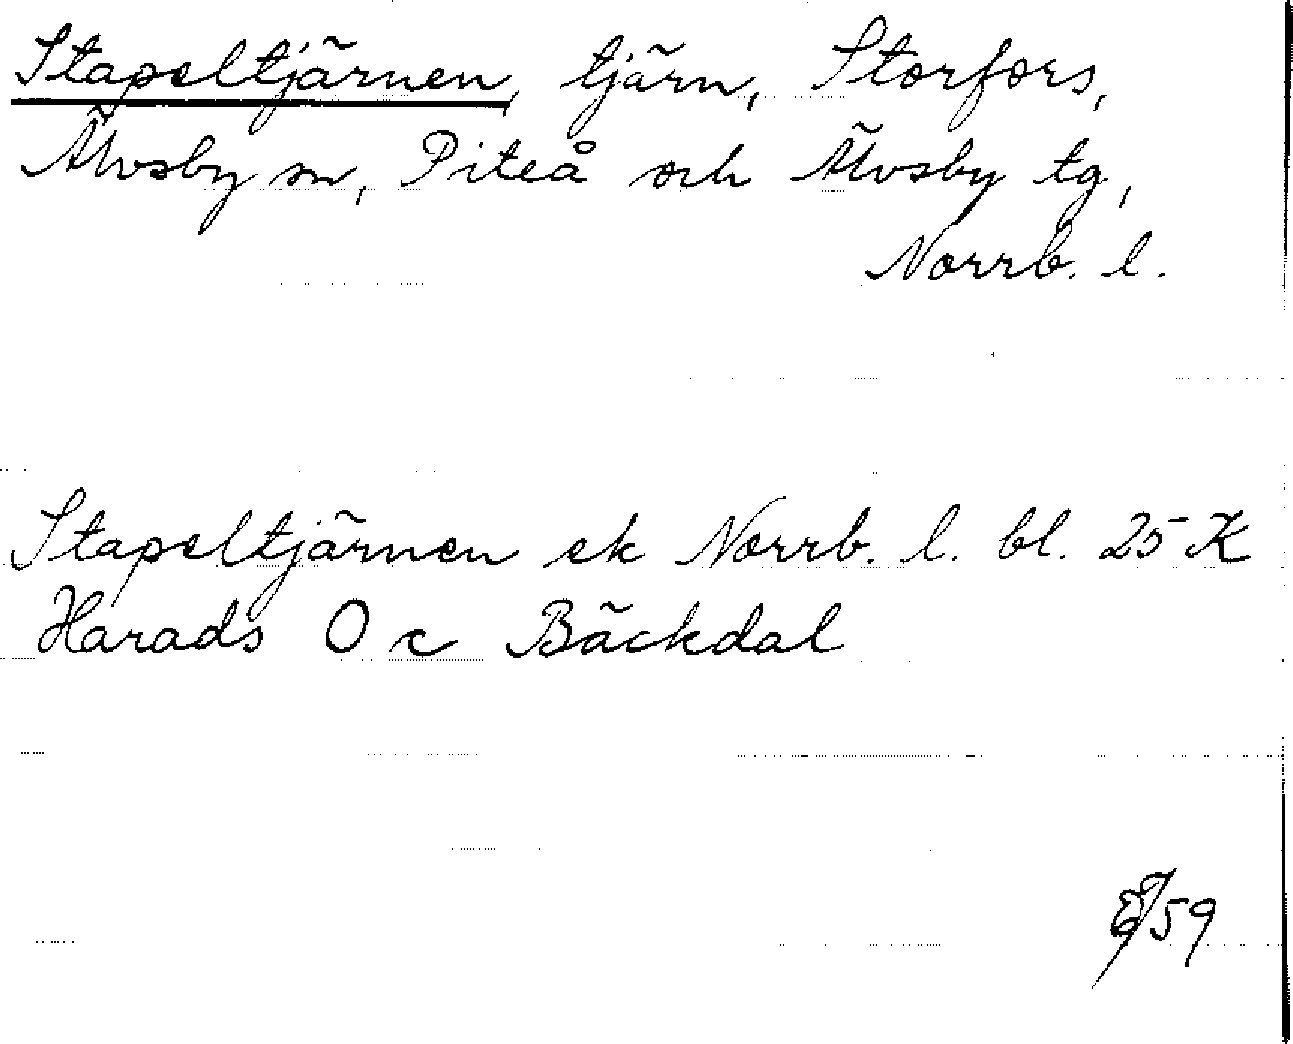 Stapeltjärnen, tjärn, Storfors,
Älvsby sn, Piteå och Älvsby tg,
Norrb. l.
Stapeltjärnen ek Norrb. l. bl. 25 K
Harads O c Bäckdal
59